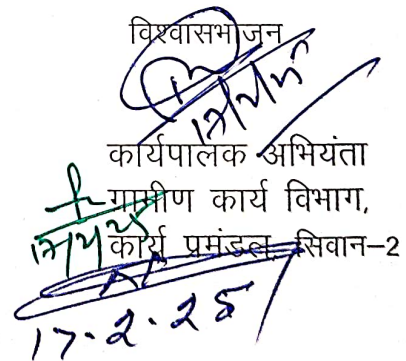 विश्वासभाजन
कार्यपालक अभियंता
ग्रामीण कार्य विभाग,
कार्य प्रमंडल, सिवान-2
17.2.25